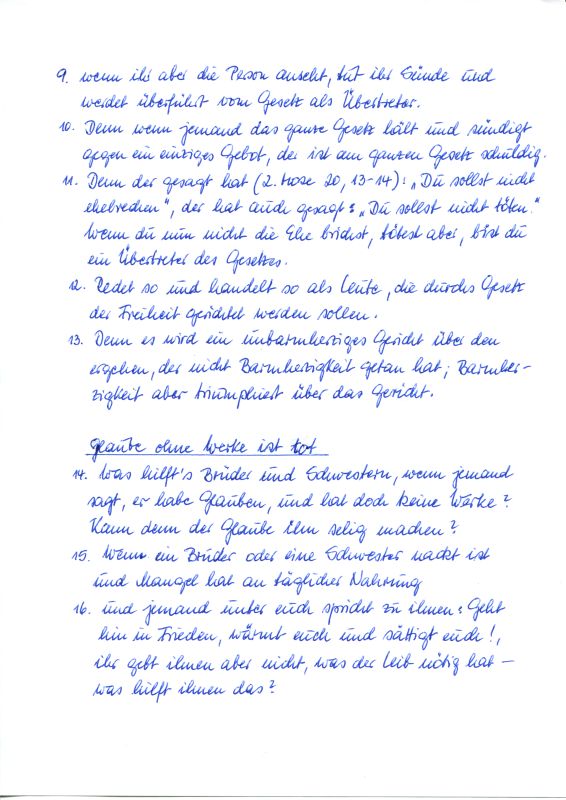 9. wenn ihr aber die Person anseht, tut ihr Sünde und
werdet überführt vom Gesetz als Übertreter.
10. Denn wenn jemand das ganze Gesetz hält und sündigt
gegen ein einziges Gebot, der ist am ganzen Gesetz schuldig.
11. Denn der gesagt hat (2. Mose 20, 13-14): „Du sollst nicht
ehebrechen", der hat auch gesagt: „Du sollst nicht töten."
Wenn du nun nicht die Ehe brichst, tötest aber, bist du
ein Übertreter des Gesetzes.
12. Redet so und handelt so als Leute, die durchs Gesetz
der Freiheit gerichtet werden sollen.
13. Denn es wird ein unbarmherziges Gericht über den
ergehen, der nicht Barmherzigkeit getan hat; Barmher-
zigkeit aber triumphiert über das Gericht.
Glaube ohne Werke ist tot
14. Was hilft's Brüder und Schwestern, wenn jemand
sagt, er habe Glauben, und hat doch keine Werke?
Kann denn der Glaube ihn selig machen?
15. Wenn ein Bruder oder eine Schwester nackt ist
und Mangel hat an täglicher Nahrung
16. und jemand unter euch spricht zu ihnen: Geht
hin in Frieden, wärmt euch und sättigt euch!,
ihr gebt ihnen aber nicht, was der Leib nötig hat –
was hilft ihnen das?